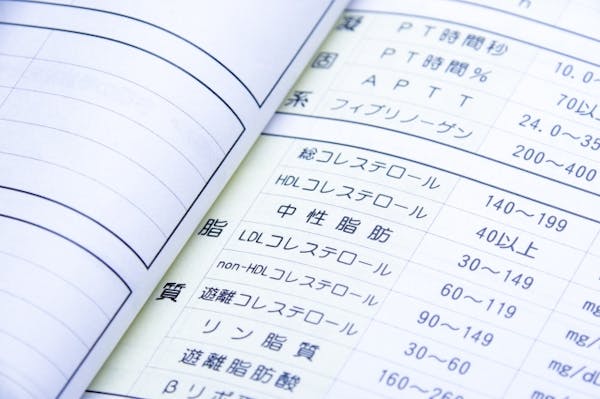 凝固系
PT時間秒 10.0〜
PT時間% 70以
APTT 24.0〜35
フィブリノーゲン 200〜400
脂質
総コレステロール 140〜199
HDLコレステロール 40以上
中性脂肪 30〜149
LDLコレステロール 60〜119 mg/
non-HDLコレステロール 90〜149 mg/d
遊離コレステロール 30〜60 mg/dL
リン脂質 160〜260
遊離脂肪酸
βリポ